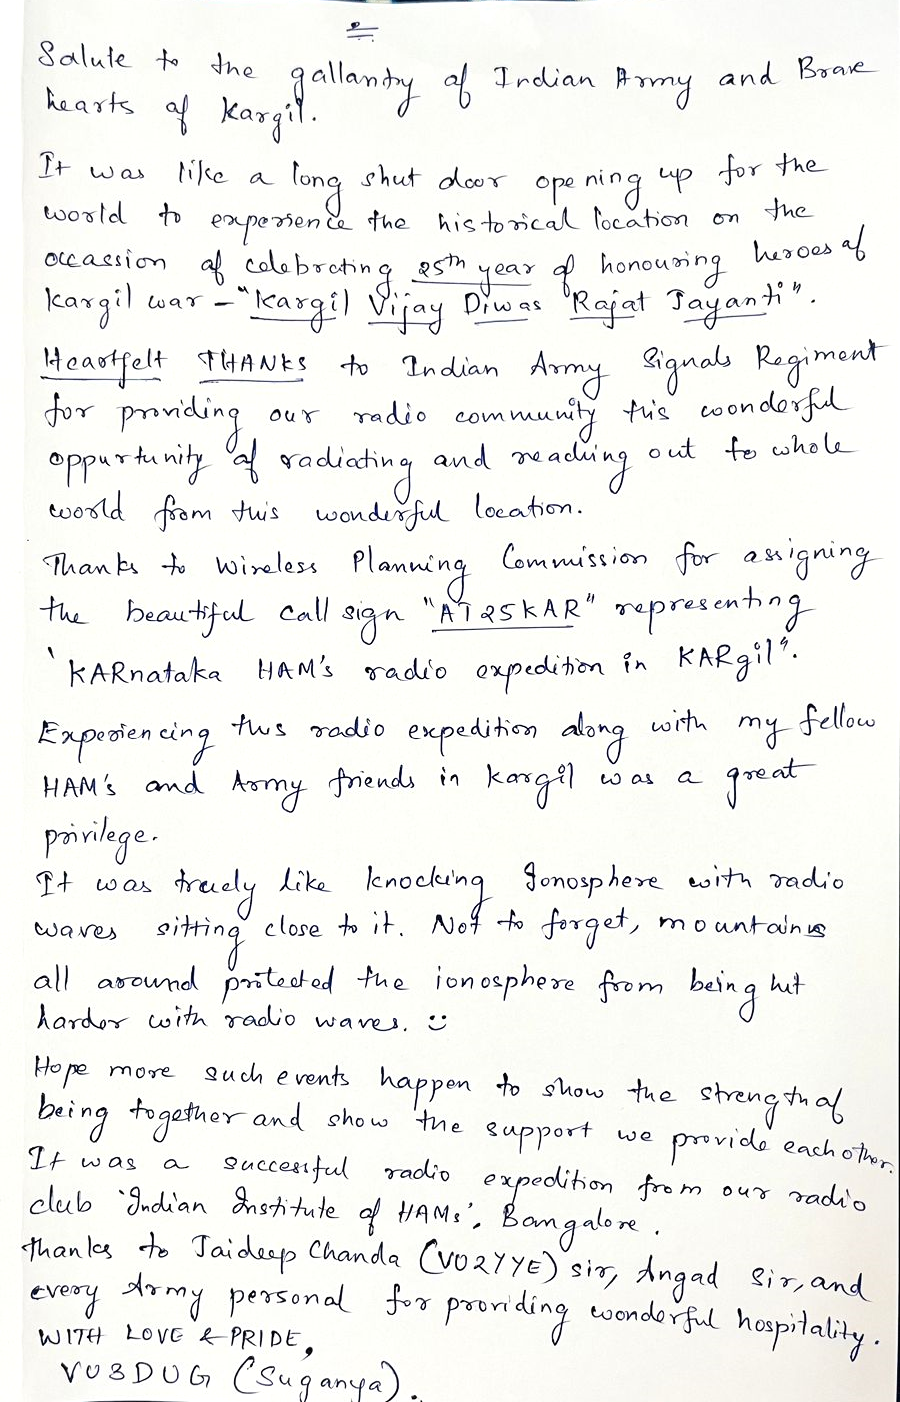 Salute to the gallantry of Indian Army and Brave
hearts of Kargil.
It was like a long shut door opening up for the
world to experience the historical location on the
occassion of celebrating 25th year of honouring heroes of
Kargil war - "Kargil Vijay Diwas Rajat Jayanti".
Heartfelt THANKS to Indian Army Signals Regiment
for providing our radio community this woonderful
oppurtunity of radiating and reaching out to whole
world from this wonderful location.
Thanks to Wireless Planning Commission for assigning
the beautiful call sign "AT25KAR" representing
'KARnataka HAM's radio expedition in KARgil".
Experiencing this radio expedition along with my fellow
HAM's and Army friends in Kargil was a great
privilege.
It was truely like knocking Ionosphere with radio
waves sitting close to it. Not to forget, mountains
all around protected the ionosphere from being hit
harder with radio waves. :)
Hope more such events happen to show the strength of
being together and show the support we provide each other.
It was a successful radio expedition from our radio
club 'Indian Institute of HAMs', Bangalore.
Thanks to Jaideep Chanda (VU2YYE) sir, Angad Sir, and
every Army personal for providing wonderful hospitality.
WITH LOVE & PRIDE,
VU3DUG (Suganya).